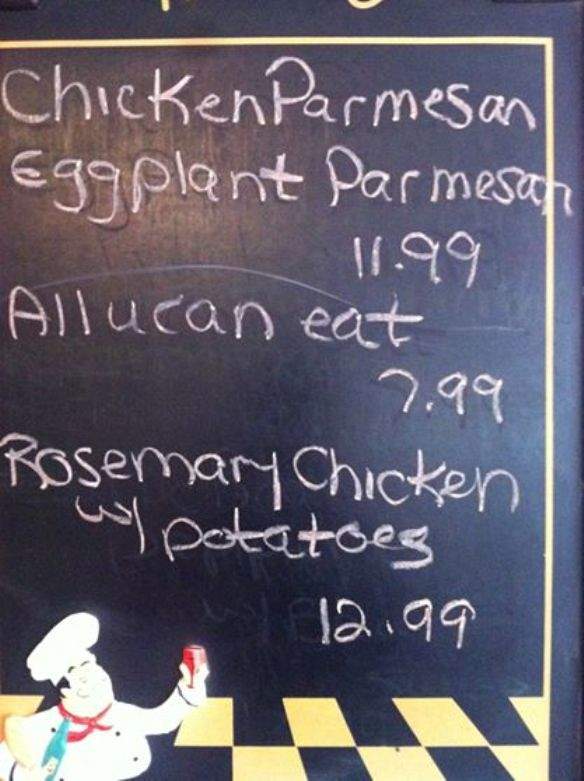 Chicken Parmesan
Eggplant Parmesan
11.99
All u can eat
7.99
Rosemary Chicken
w/ potatoes
12.99